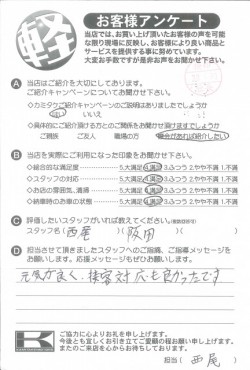 軽
お客様アンケート
当店では、お買い上げ頂いたお客様の声を可能
な限り現場に反映し、お客様により良い商品と
サービスを提供する事に努めています。
大変お手数ですが是非お声をお聞かせ下さい。
A 当店はご紹介を大切にしております。
ご紹介キャンペーンについてお聞かせ下さい。
◇カミタケご紹介キャンペーンのご説明はありましたでしょうか
はい いいえ
◇具体的にご紹介頂ける方とのご関係をお聞かせ頂けますでしょうか
ご親族 ご友人 職場の方 機会があれば紹介したい
B 当店を実際にご利用になった印象をお聞かせ下さい。
◇総合的な満足度 5.大満足 4.満足 3.ふつう 2.やや不満 1.不満
◇スタッフの対応 5.大満足 4.満足 3.ふつう 2.やや不満 1.不満
◇お店の雰囲気、清掃 5.大満足 4.満足 3.ふつう 2.やや不満 1.不満
◇納車時のお車の状態 5.大満足 4.満足 3.ふつう 2.やや不満 1.不満
C 評価したいスタッフがいれば教えてください。(複数回答可)
スタッフ名( 西尾 )( 阪田 )
D 担当させて頂きましたスタッフへのご指摘、ご指導メッセージを
お願いします。応援メッセージもぜひお願いします。
元気が良く、接客対応も良かったです
K
ご協力に心よりお礼を申し上げます。
今後とも宜しくお引き立てご愛顧の程お願い申し上げます。
またのご来店を心からお待ちしております。
担当( 西尾 )